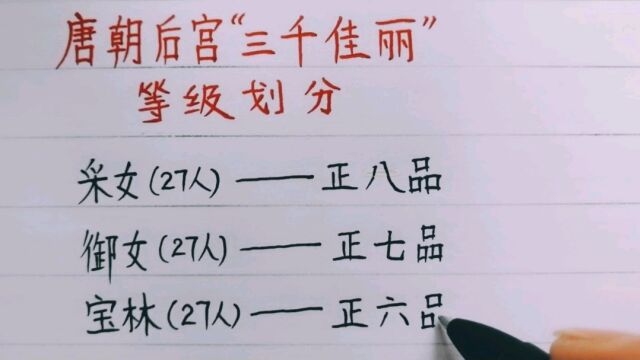 唐朝后宫“三千佳丽”
等级划分
采女(27人)——正八品
御女(27人)——正七品
宝林(27人)——正六品